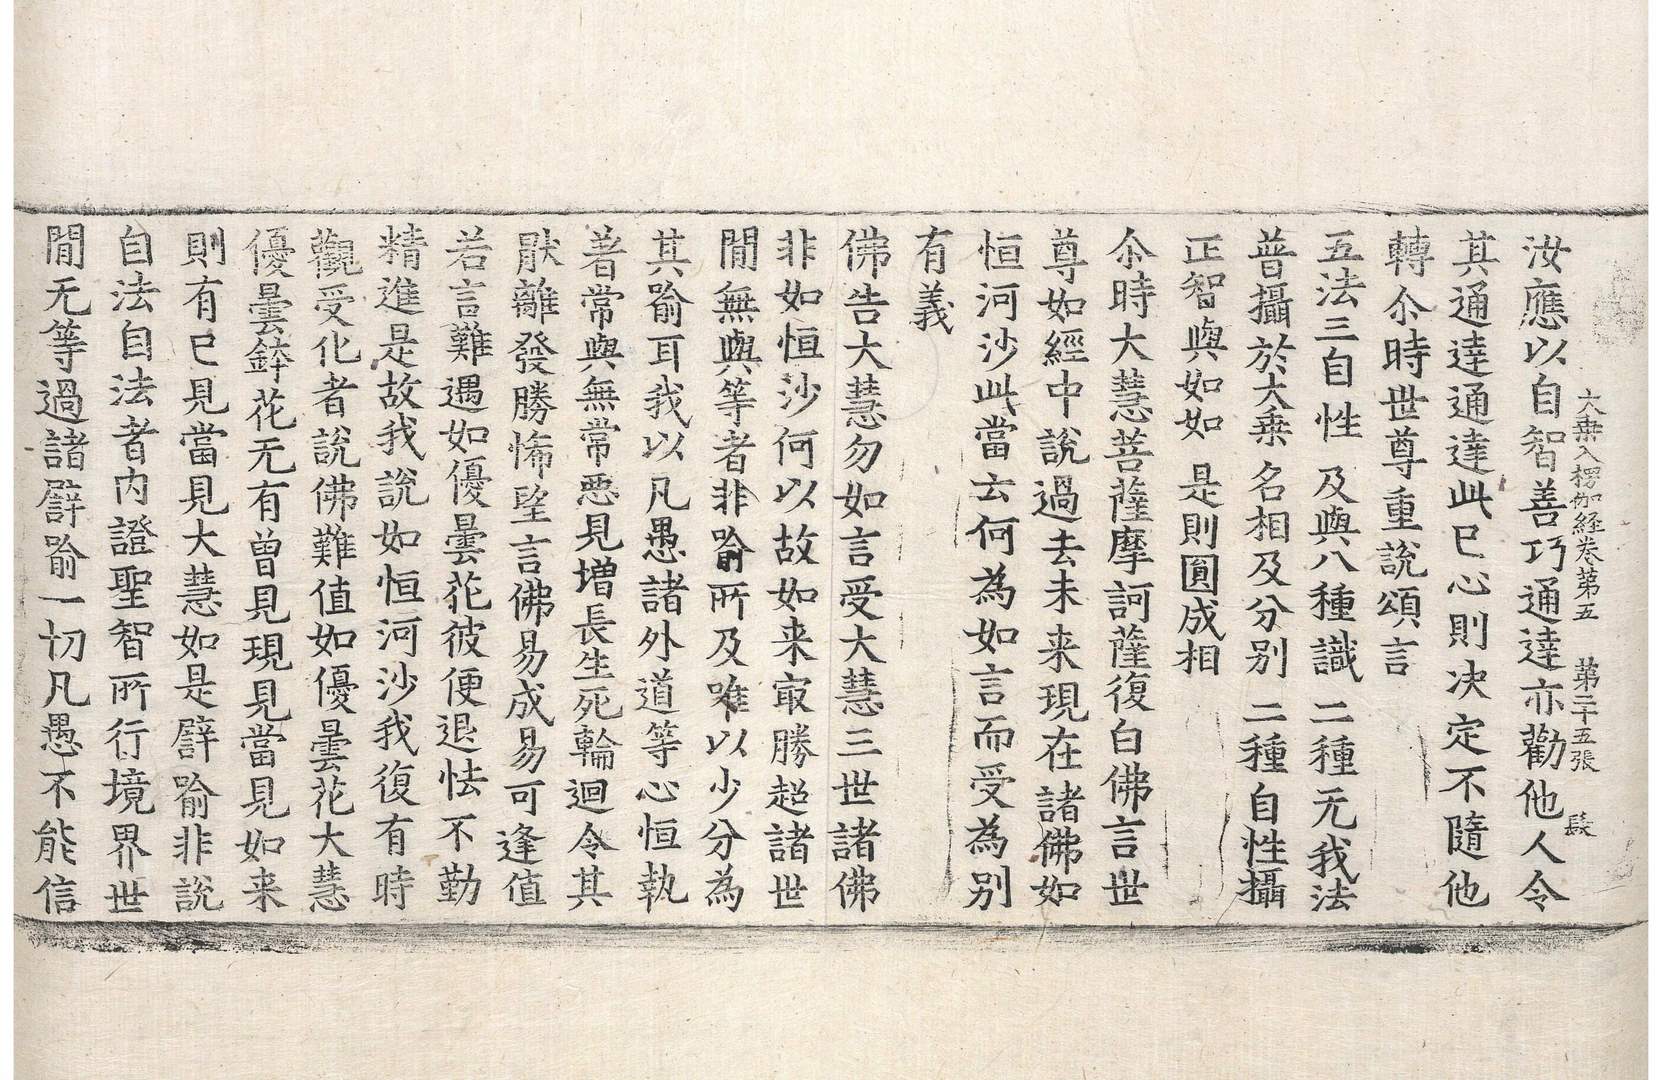 大乗入楞伽経卷第五　第二十五張　㲠
汝應以自智善巧通達亦勸他人令
其通達通達此已心則决定不隨他
轉尒時世尊重說頌言
五法三自性　及與八種識　二種无我法
普攝於大乗　名相及分别　二種自性攝
正智與如如　是則圓成相
尒時大慧菩薩摩訶薩復白佛言世
尊如經中說過去未来現在諸佛如
恒河沙此當云何為如言而受為别
有義
佛告大慧勿如言受大慧三世諸佛
非如恒沙何以故如来㝡勝超諸世
閒無與等者非喻所及唯以少分為
其喻耳我以凡愚諸外道等心恒執
著常與無常惡見增長生死輪迴令其
猒離發勝悕望言佛易成易可逢值
若言難遇如優曇花彼便退怯不勤
精進是故我說如恒河沙我復有時
觀受化者說佛難值如優曇花大慧
優曇鉢花无有曾見現見當見如来
則有已見當見大慧如是譬喻非說
自法自法者内證聖智所行境界世
閒无等過諸譬喻一切凡愚不能信